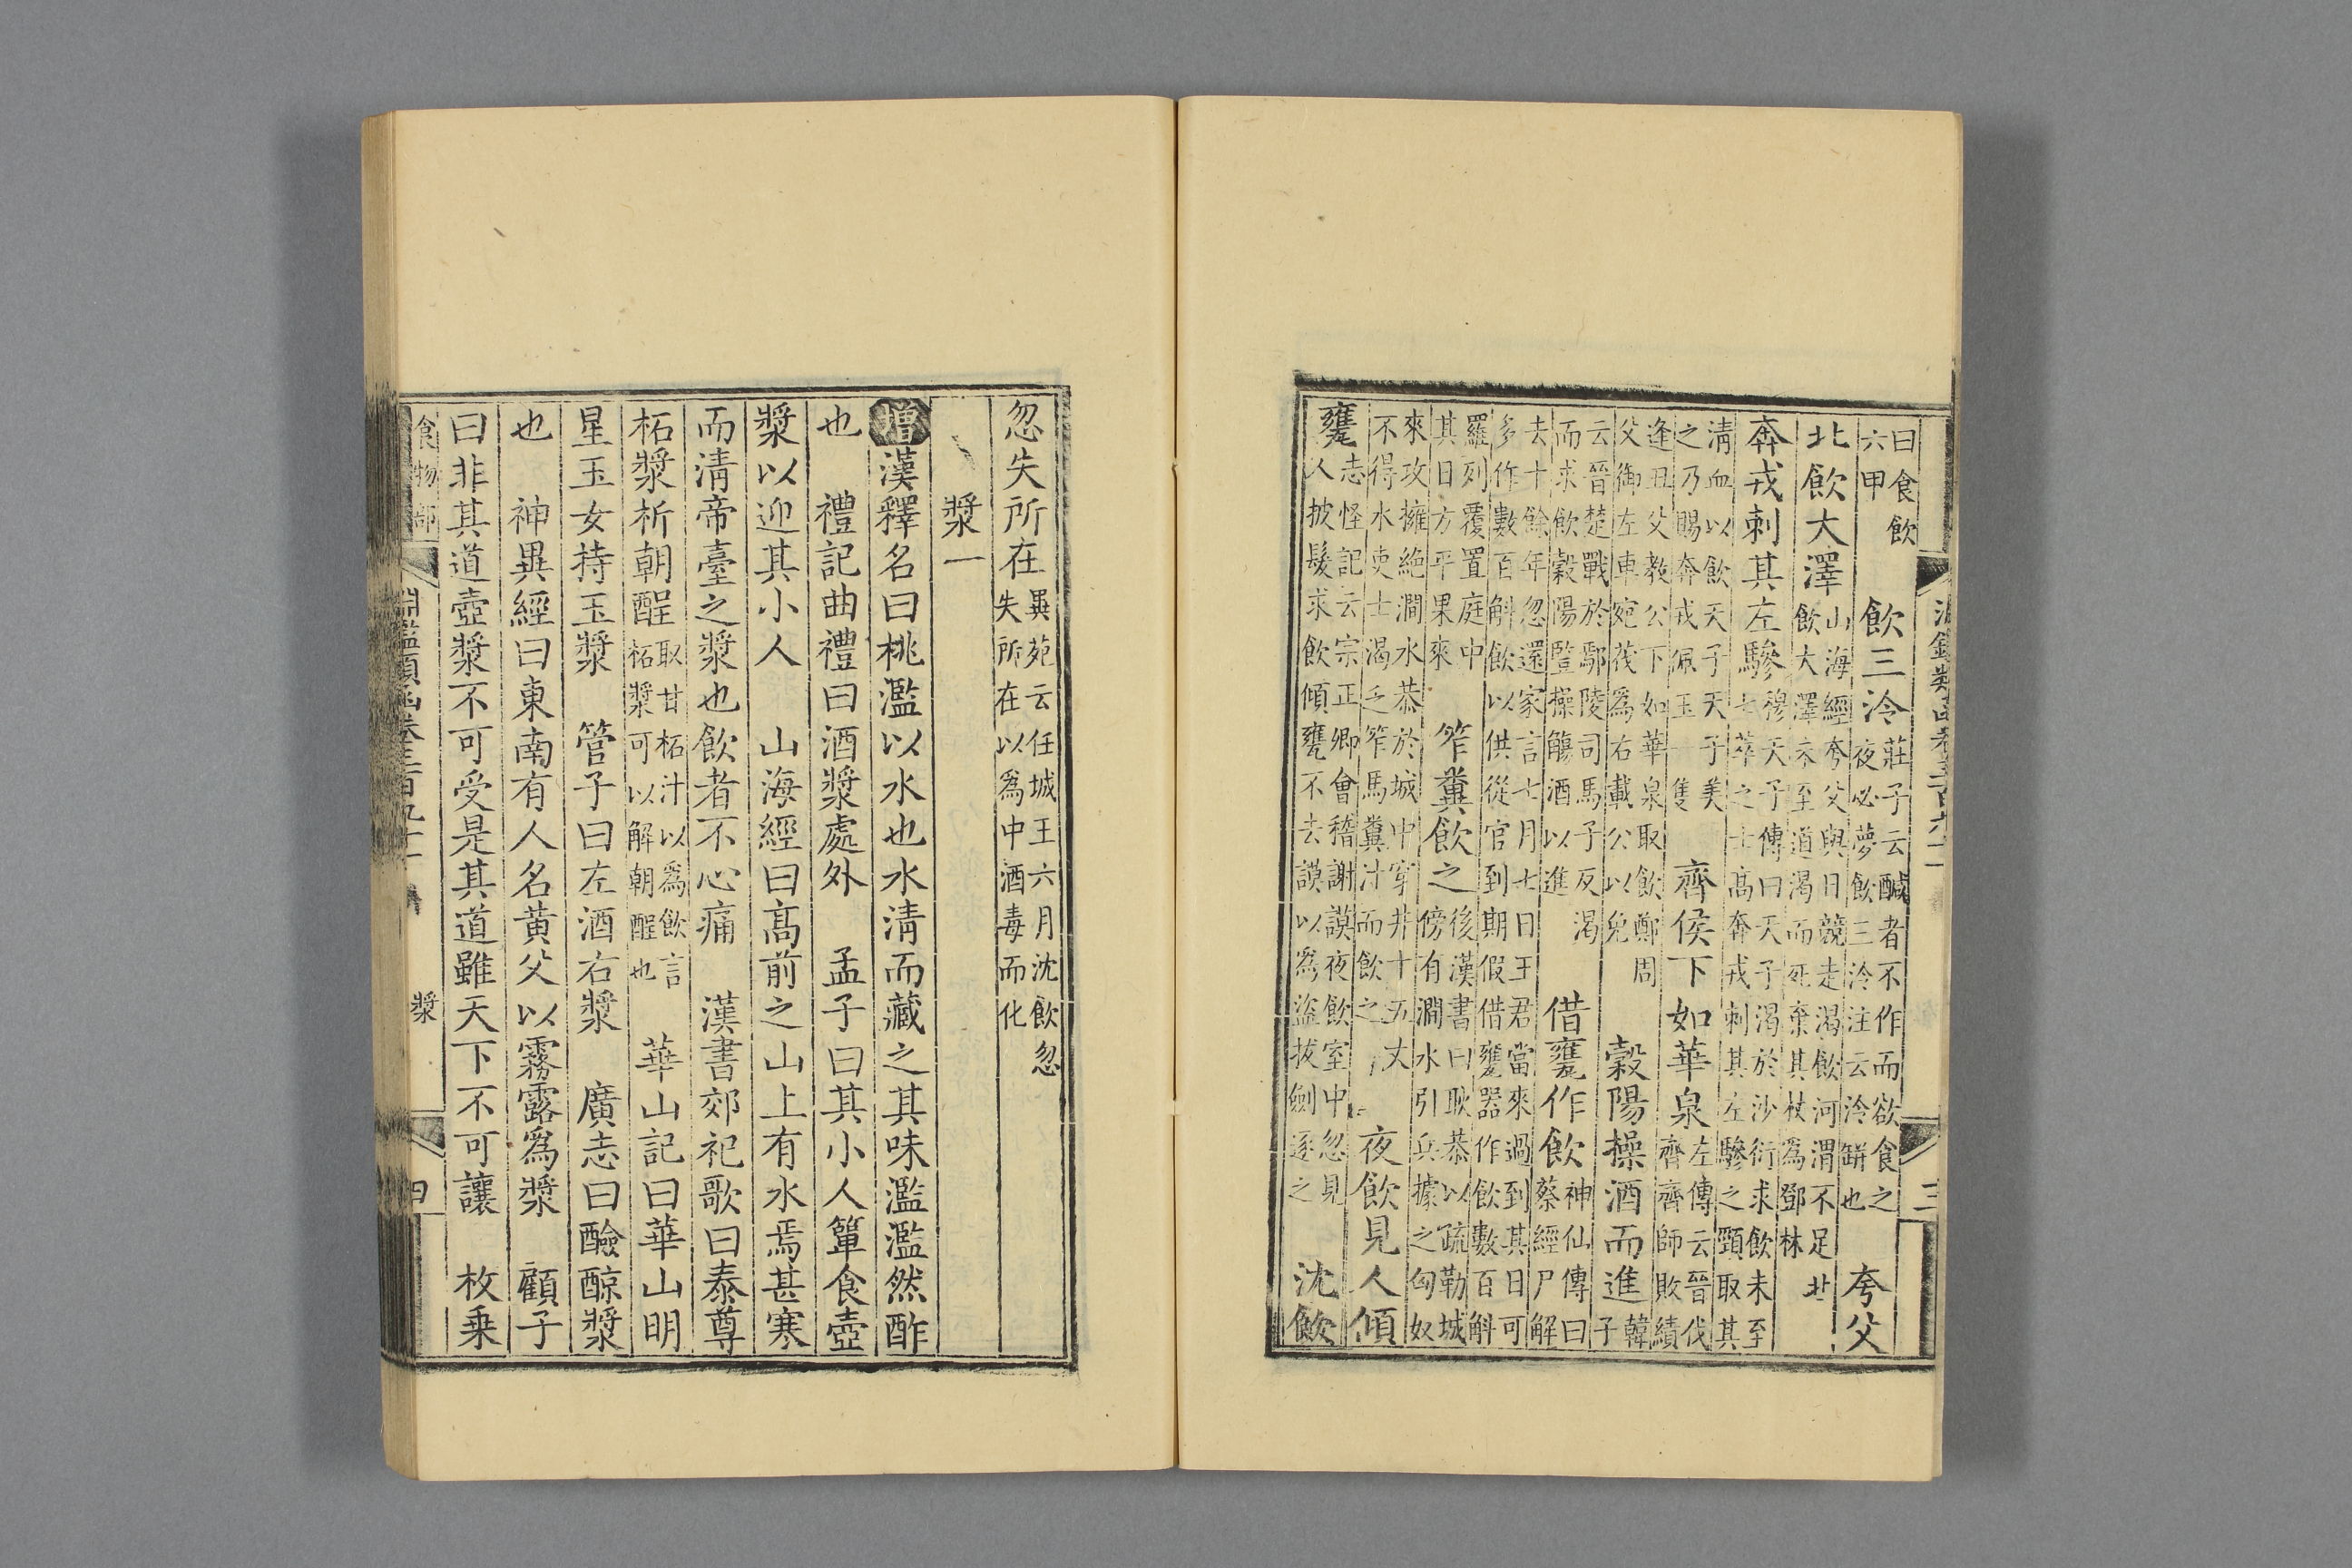 曰食飲
六甲
飲三泠
莊子云醎者不作而欲食之
夜必夢飲三泠注云泠缾也
夸父
北飲大澤
山海經夸父與日競走渴飲河渭不足北
飲大澤未至道渴而死棄其杖爲鄧林
奔戎刺其左驂
穆天子傳曰天子渴於沙衍求飲未至
七萃之士高奔戎刺其左驂之頸取其
清血以飲天子天子美
之乃賜奔戎佩玉一隻
齊侯下如華泉
左傳云晉伐
齊齊師敗績
逢丑父教公下如華泉取飲鄭周
父御左車宛茷爲右載公以免
穀陽操酒而進
韓
子
云晉楚戰於鄢陵司馬子反渴
而求飲穀陽豎操觴酒以進
借甕作飲
神仙傳曰
蔡經尸解
去十餘年忽還家言七月七日王君當來過到其日可
多作數百斛飲以供從官到期假借甕器作飲數百斛
羅列覆置庭中
其日方平果來
笮糞飲之
後漢書曰耿恭以疏勒城
傍有澗水引兵據之匈奴
來攻擁絕澗水恭於城中穿井十五丈
不得水吏士渴乏笮馬糞汁而飲之
夜飲見人傾
甕
志怪記云宗正卿會稽謝謨夜飲室中忽見
人披髮求飲傾甕不去謨以爲盜拔劍逐之
沈飲
忽失所在
異苑云任城王六月沈飲忽
失所在以爲中酒毒而化
漿一
增漢釋名曰桃濫以水也水清而藏之其味濫濫然酢
也 禮記曲禮曰酒漿處外 孟子曰其小人簞食壺
漿以迎其小人 山海經曰高前之山上有水焉甚寒
而清帝臺之漿也飲者不心痛 漢書郊祀歌曰泰尊
柘漿析朝酲
取甘柘汁以爲飲言
柘漿可以解朝酲也
華山記曰華山明
星玉女持玉漿 管子曰左酒右漿 廣志曰醶醇漿
也 神異經曰東南有人名黃父以霧露爲漿 顧子
曰非其道壺漿不可受是其道雖天下不可讓 枚乗
食物部
淵鑑類函卷三百九十一
漿
四